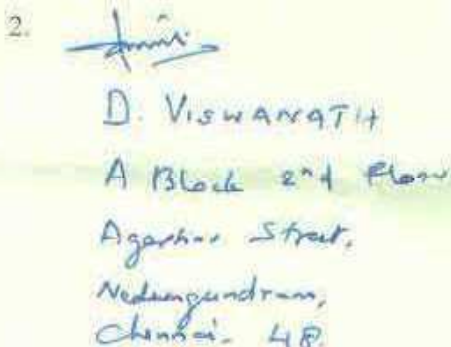 2.
D. VISWANATH
A Block 2nd Floor
Agarhar Street,
Nedungundram,
Chennai - 48